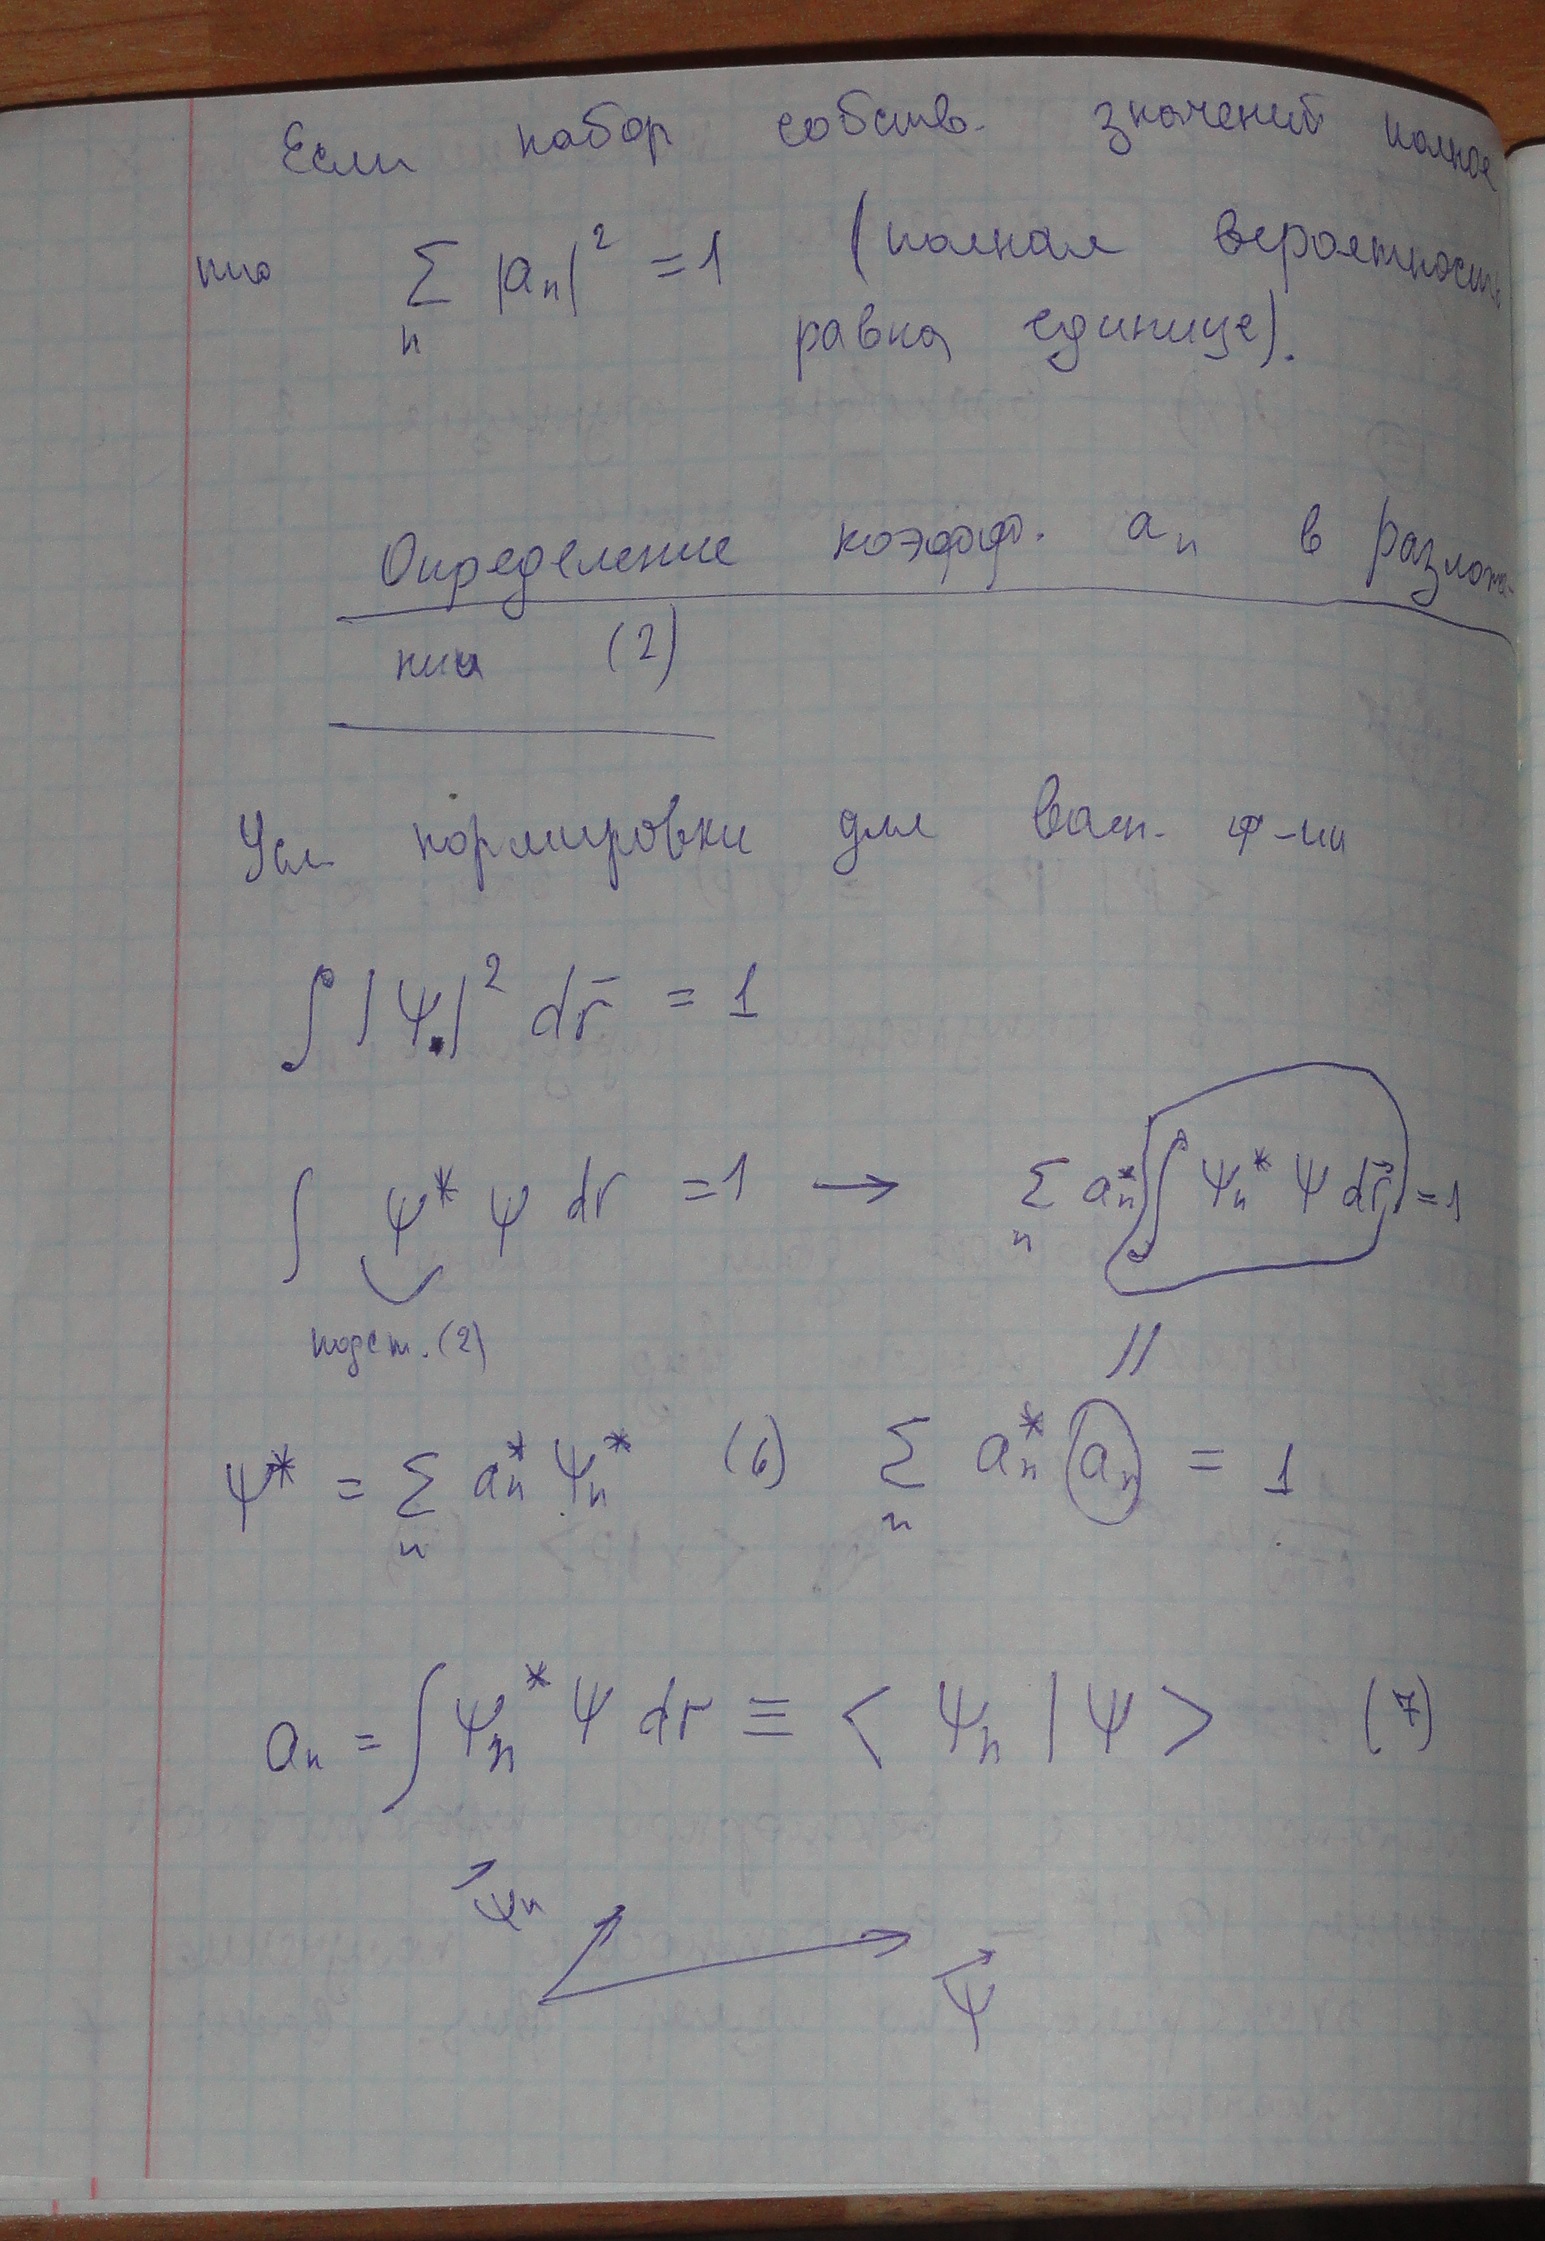 Если набор собств. значений полное
то \sum_n |a_n|^2 = 1 (полная вероятность
равна единице).
Определение коэфф. a_n в разложе-
нии (2)
Усл нормировки для волн. ф-ии
\int |\Psi|^2 d\bar{r} = 1
\int \Psi^* \Psi dr = 1 → \sum_n a_n^* \int \Psi_n^* \Psi d\vec{r} = 1
подст. (2) //
\Psi^* = \sum_n a_n^* \Psi_n^* (6) \sum_n a_n^* a_n = 1
a_n = \int \Psi_n^* \Psi dr ≡ < \Psi_n | \Psi > (7)
\vec{\Psi}_n
\vec{\Psi}